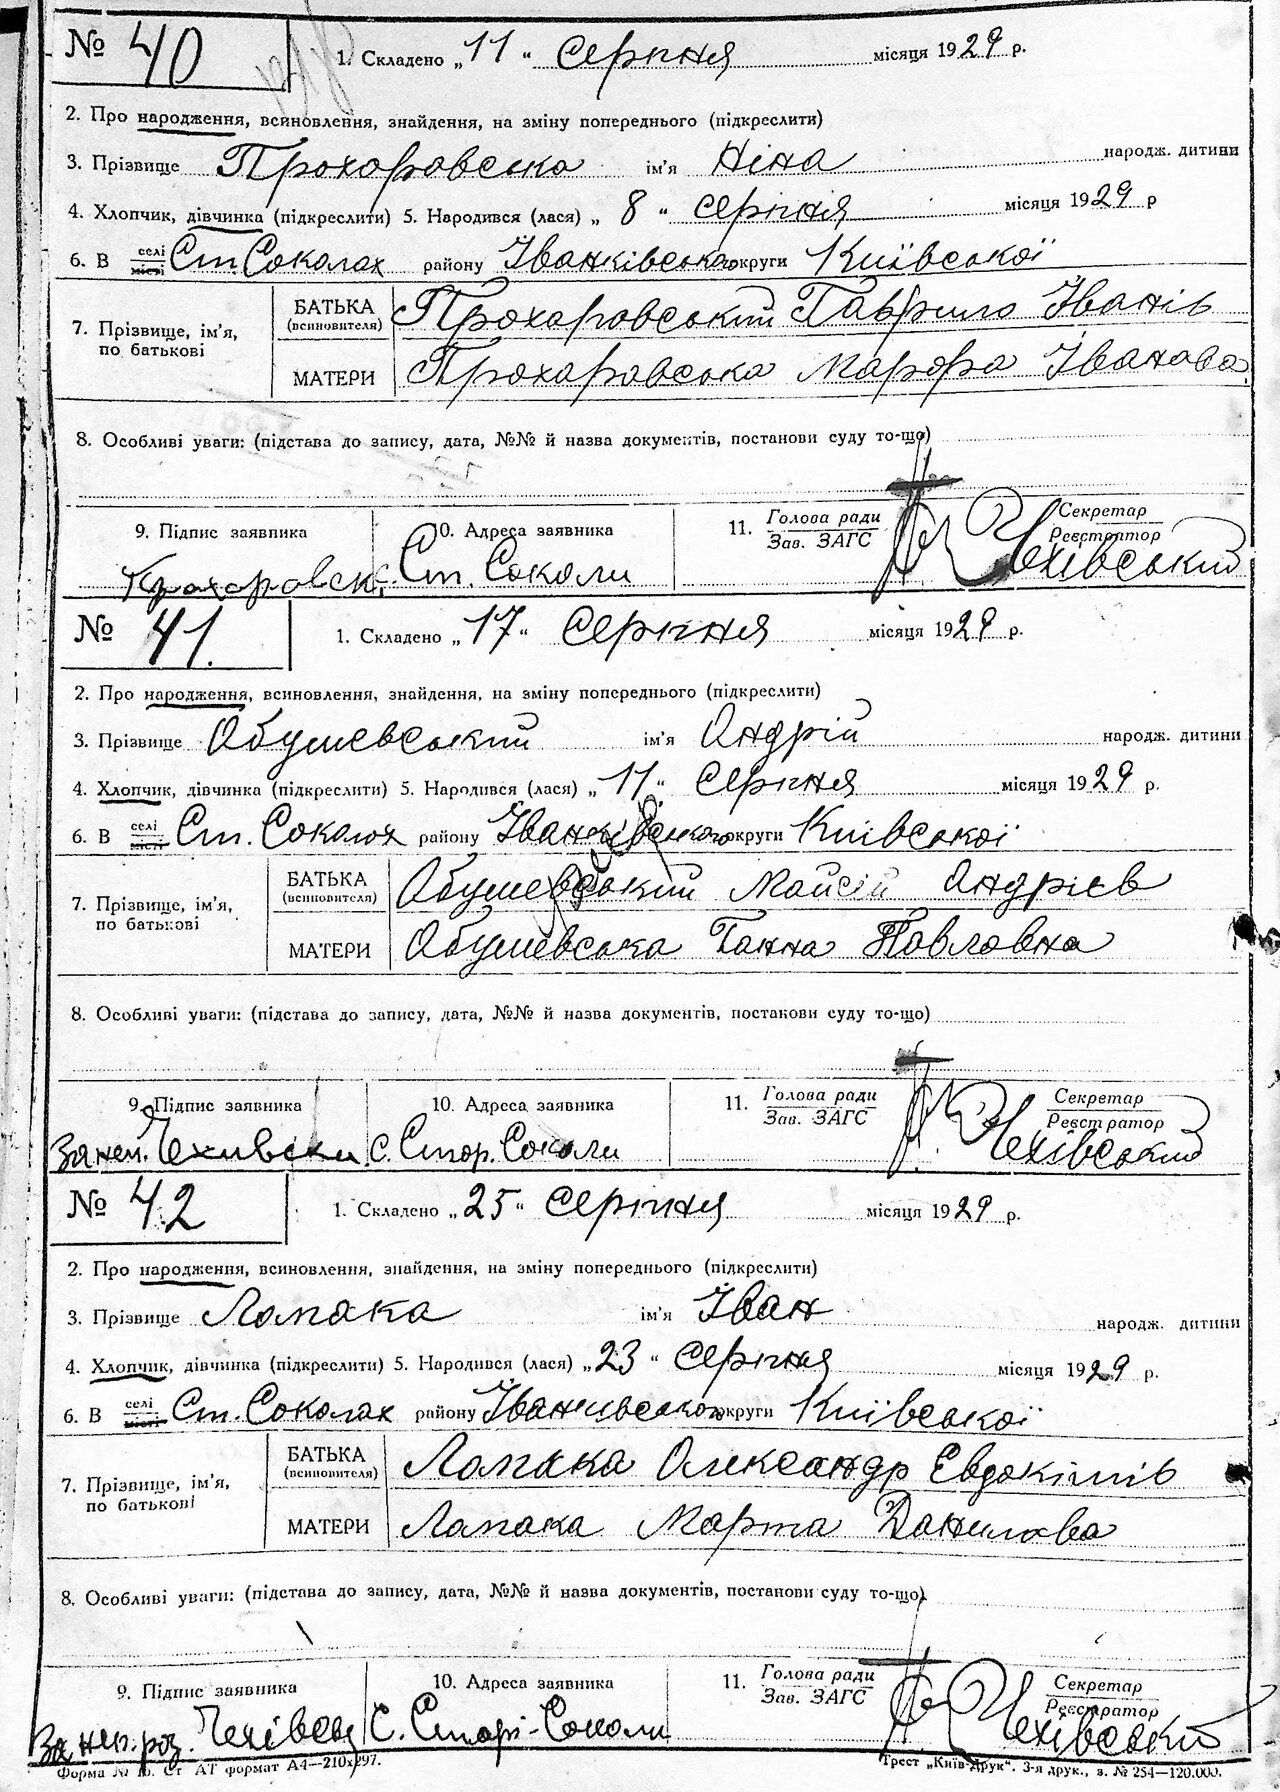 № 40 1. Складено „11“ серпня місяця 1929 р.
2. Про народження, всиновлення, знайдення, на зміну попереднього (підкреслити)
3. Прізвище Прохоровська ім'я Ніна народж. дитини
4. Хлопчик, дівчинка (підкреслити) 5. Народився (лася) „8“ серпня місяця 1929 р
6. В селі місті Ст. Соколах району Іванківського округи Київської
7. Прізвище, ім'я, по батькові
БАТЬКА (всиновителя) Прохоровський Гаврило Іванів
МАТЕРИ Прохоровська Марфа Іванова
8. Особливі уваги: (підстава до запису, дата, №№ й назва документів, постанови суду то-що)
9. Підпис заявника 10. Адреса заявника 11. Голова ради Зав. ЗАГС Секретар Реєстратор
Ст. Соколи Чехівський
№ 41. 1. Складено „17“ серпня місяця 1929 р.
2. Про народження, всиновлення, знайдення, на зміну попереднього (підкреслити)
3. Прізвище Обушевський ім'я Андрій народж. дитини
4. Хлопчик, дівчинка (підкреслити) 5. Народився (лася) „11“ серпня місяця 1929 р.
6. В селі місті Ст. Соколах району Іванківського округи Київської
7. Прізвище, ім'я, по батькові
БАТЬКА (всиновителя) Обушевський Мойсій Андрієв
МАТЕРИ Обушевська Ганна Павловна
8. Особливі уваги: (підстава до запису, дата, №№ й назва документів, постанови суду то-що)
9. Підпис заявника 10. Адреса заявника 11. Голова ради Зав. ЗАГС Секретар Реєстратор
За неп. с. Стар. Соколи Чехівський
№ 42 1. Складено „25“ серпня місяця 1929 р.
2. Про народження, всиновлення, знайдення, на зміну попереднього (підкреслити)
3. Прізвище Лопака ім'я Іван народж. дитини
4. Хлопчик, дівчинка (підкреслити) 5. Народився (лася) „23“ серпня місяця 1929 р.
6. В селі місті Ст. Соколах району Іванківського округи Київської
7. Прізвище, ім'я, по батькові
БАТЬКА (всиновителя) Лопака Олександр Евдокімів
МАТЕРИ Лопака Марта Данилова
8. Особливі уваги: (підстава до запису, дата, №№ й назва документів, постанови суду то-що)
9. Підпис заявника 10. Адреса заявника 11. Голова ради Зав. ЗАГС Секретар Реєстратор
За неп. роз. с. Старі-Соколи Чехівський
Форма № 10. Ст АТ формат А4—210х297. Трест „Київ-Друк“. 3-я друк., з. № 254—120.000.